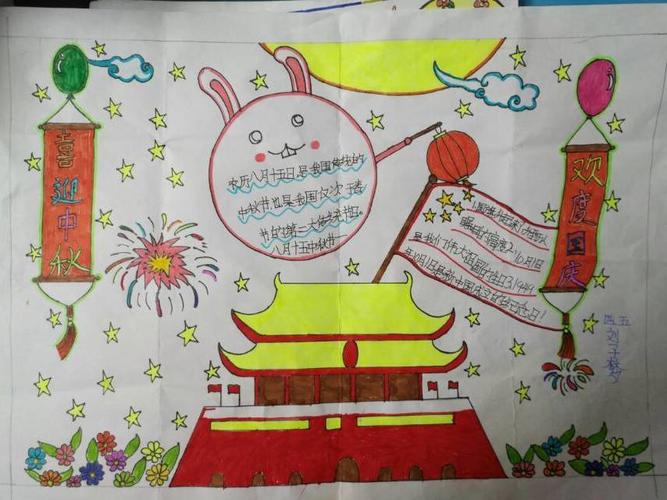 喜迎中秋
农历八月十五日,是我国传统的
中秋节,也是我国仅次于春
节的第二大传统节日。
八月十五中秋节
国庆2.10月1日
是我们伟大祖国的生日3.1949
年10月1日是新中国成立的纪念日!
欢度国庆
四五